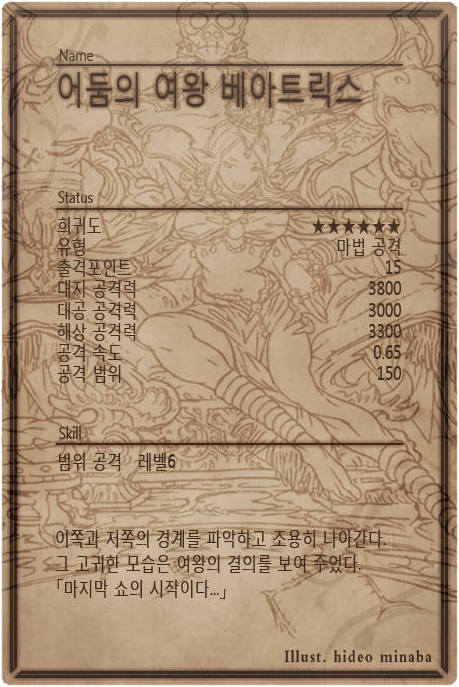 Name
어둠의 여왕 베아트릭스
Status
희귀도 ★★★★★★
유형 마법 공격
출격포인트 15
대지 공격력 3800
대공 공격력 3000
해상 공격력 3300
공격 속도 0.65
공격 범위 150
Skill
범위 공격 레벨6
이쪽과 저쪽의 경계를 파악하고 조용히 나아간다.
그 고귀한 모습은 여왕의 결의를 보여 주었다.
「마지막 쇼의 시작이다...」
Illust. hideo minaba